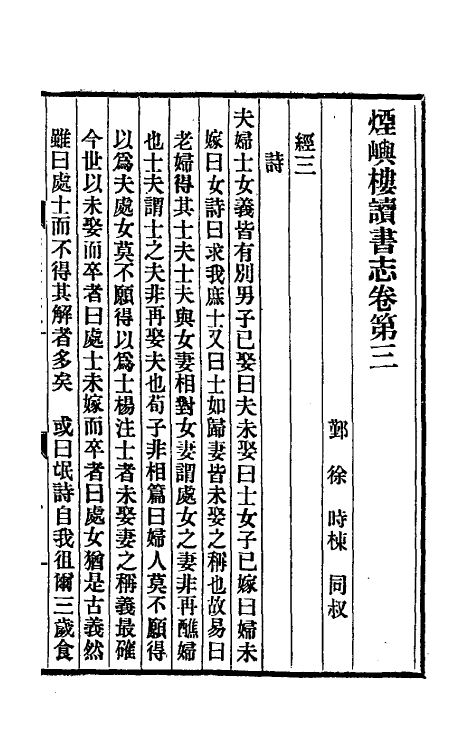 煙嶼樓讀書志卷第三
鄞徐時棟同叔
經三
詩
夫婦士女義皆有別男子已娶曰夫未娶曰士女子已嫁曰婦未
嫁曰女詩曰求我庶士又曰士如歸妻皆未娶之稱也故易曰
老婦得其士夫士夫與女妻相對女妻謂處女之妻非再醮婦
也士夫謂士之夫非再娶夫也荀子非相篇曰婦人莫不願得
以爲夫處女莫不願得以爲士楊注士者未娶妻之稱義最確
今世以未娶而卒者曰處士未嫁而卒者曰處女猶是古義然
雖曰處士而不得其解者多矣　或曰氓詩自我徂爾三歲食